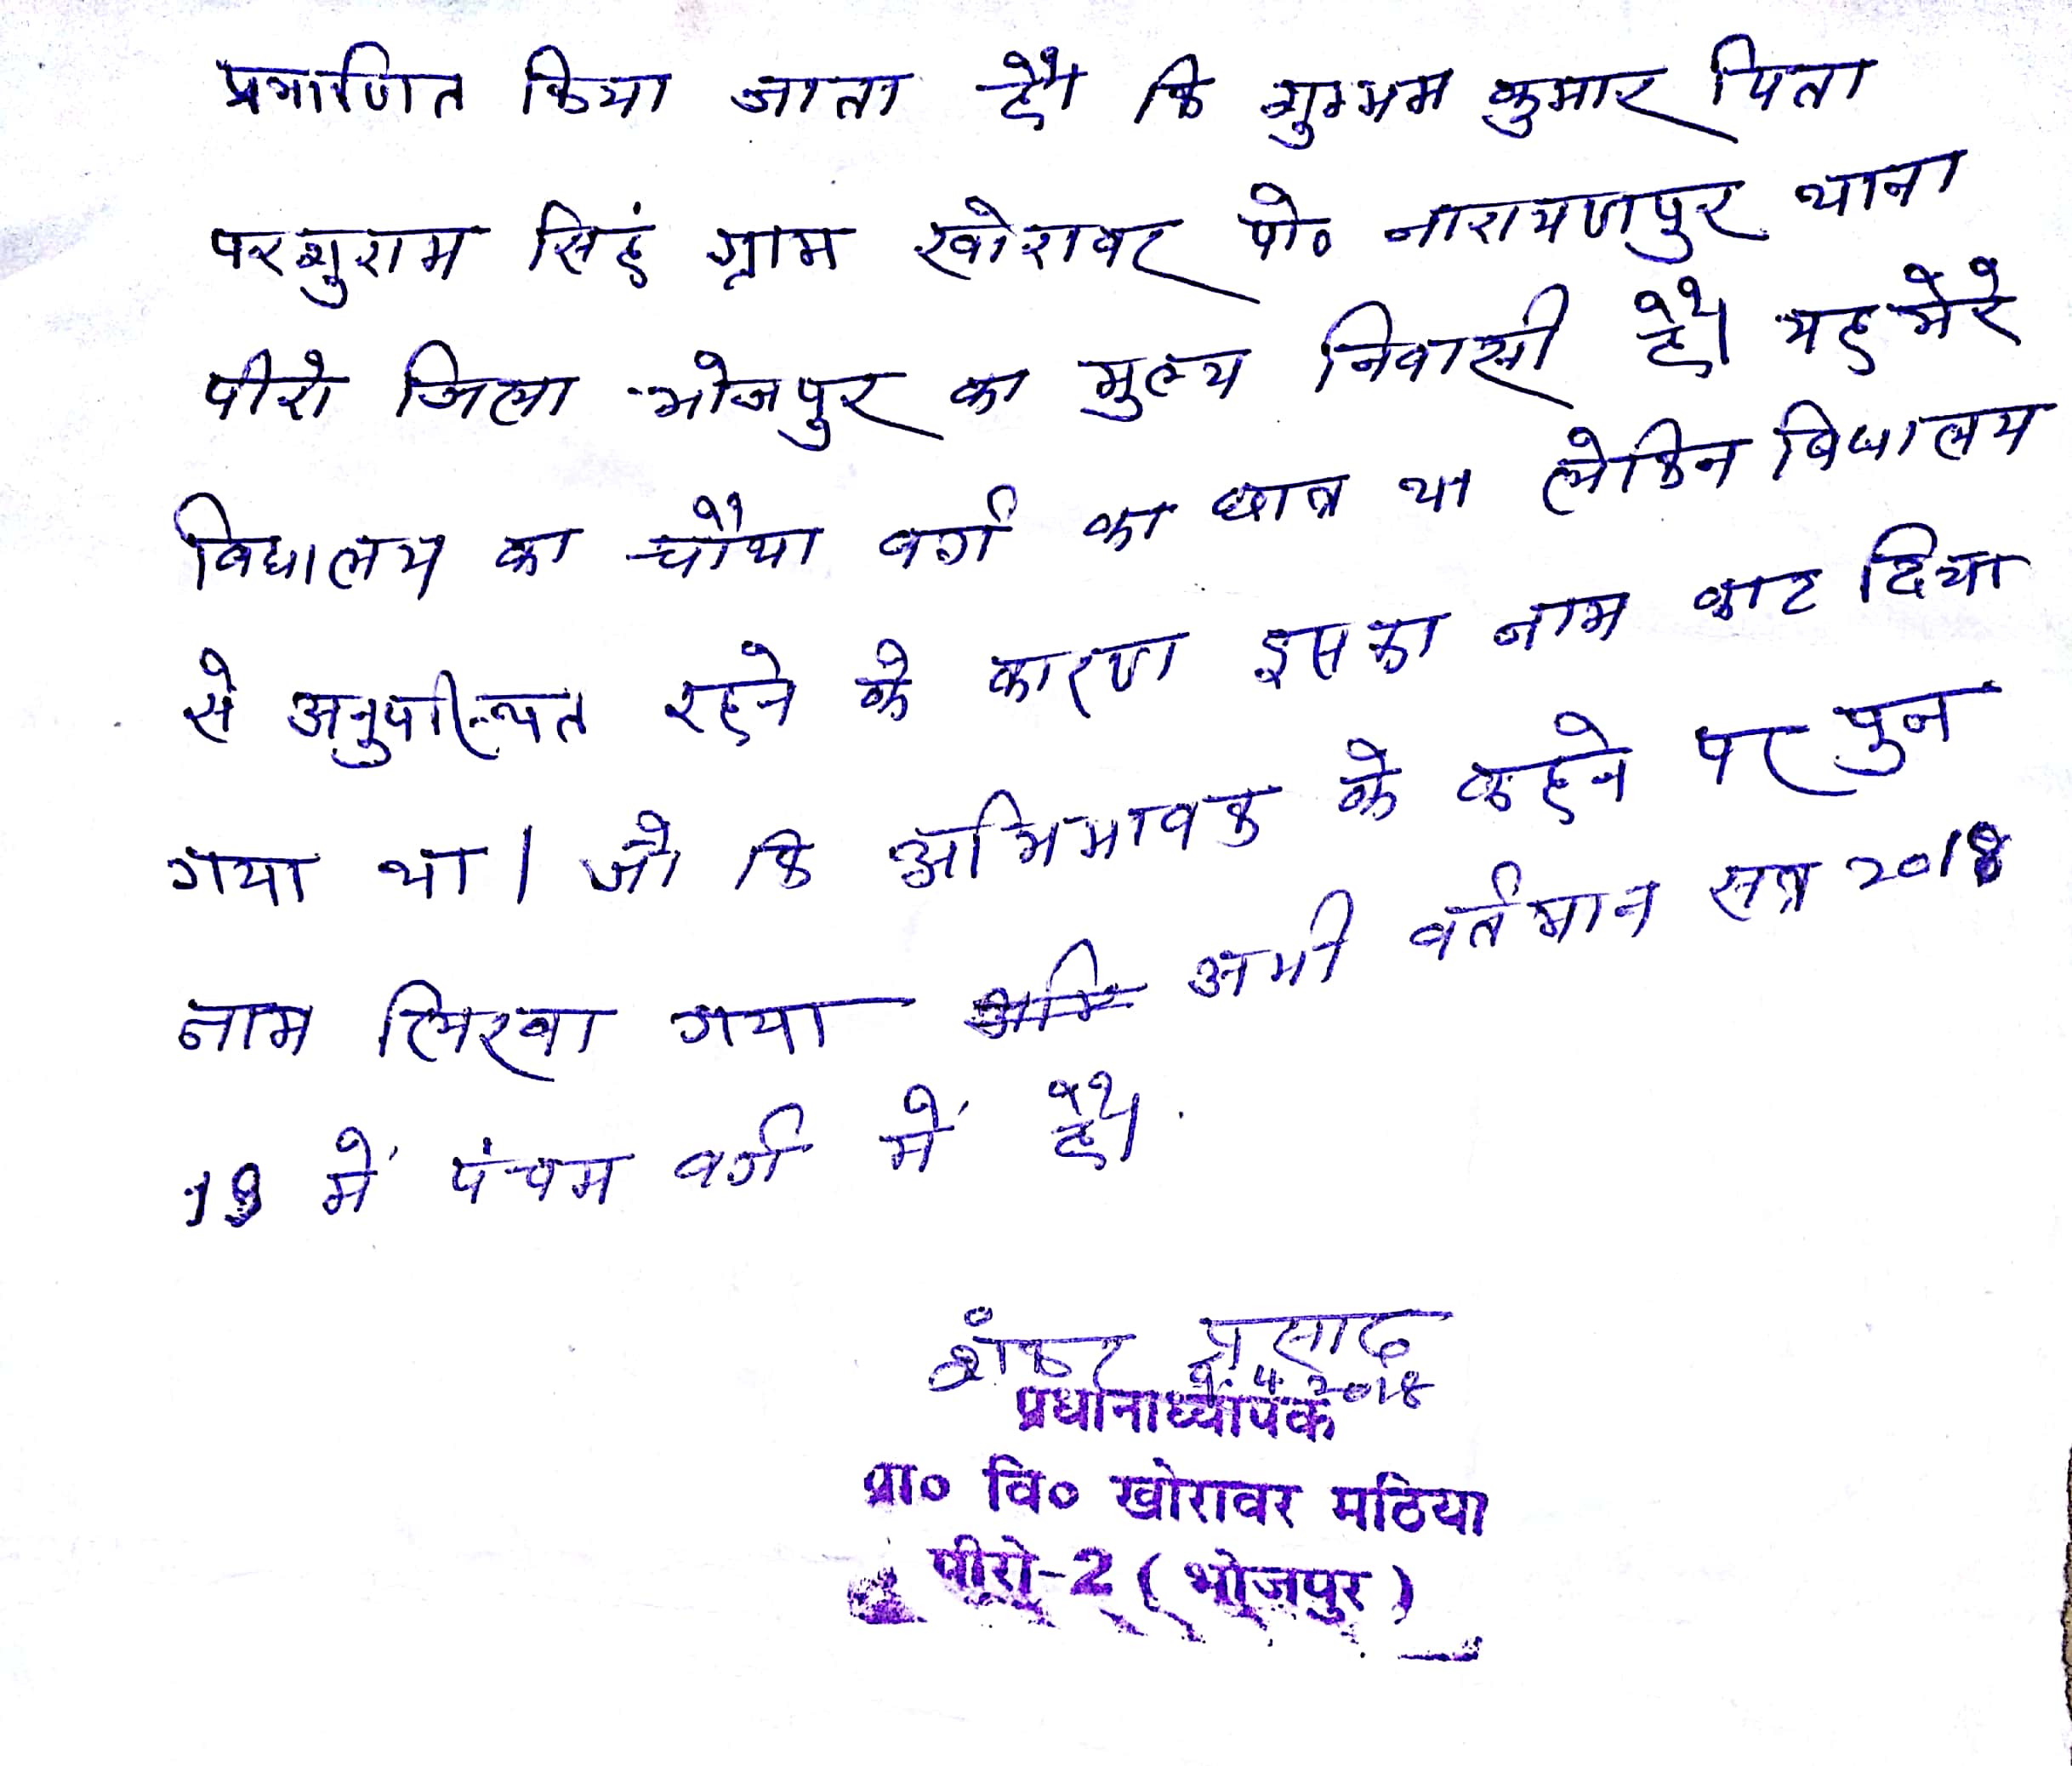 प्रमाणित किया जाता है कि शुभम कुमार पिता
परशुराम सिहं ग्राम खोरावर पो० नारायणपुर थाना
पीरो जिला भोजपुर का मुल्य निवासी है। यह मेरे
विद्यालय का चौथा वर्ग का छात्र था लेकिन विद्यालय
से अनुपस्थित रहने के कारण इसका नाम काट दिया
गया था। जो कि अभिभावक के कहने पर पुन
नाम लिखा गया अभी वर्तमान सत्र 2018
19 में पंचम वर्ग में है।
शंकर प्रसाद
9.4.2018
प्रधानाध्यापक
प्रा० वि० खोरावर मठिया
पीरो-2 (भोजपुर)